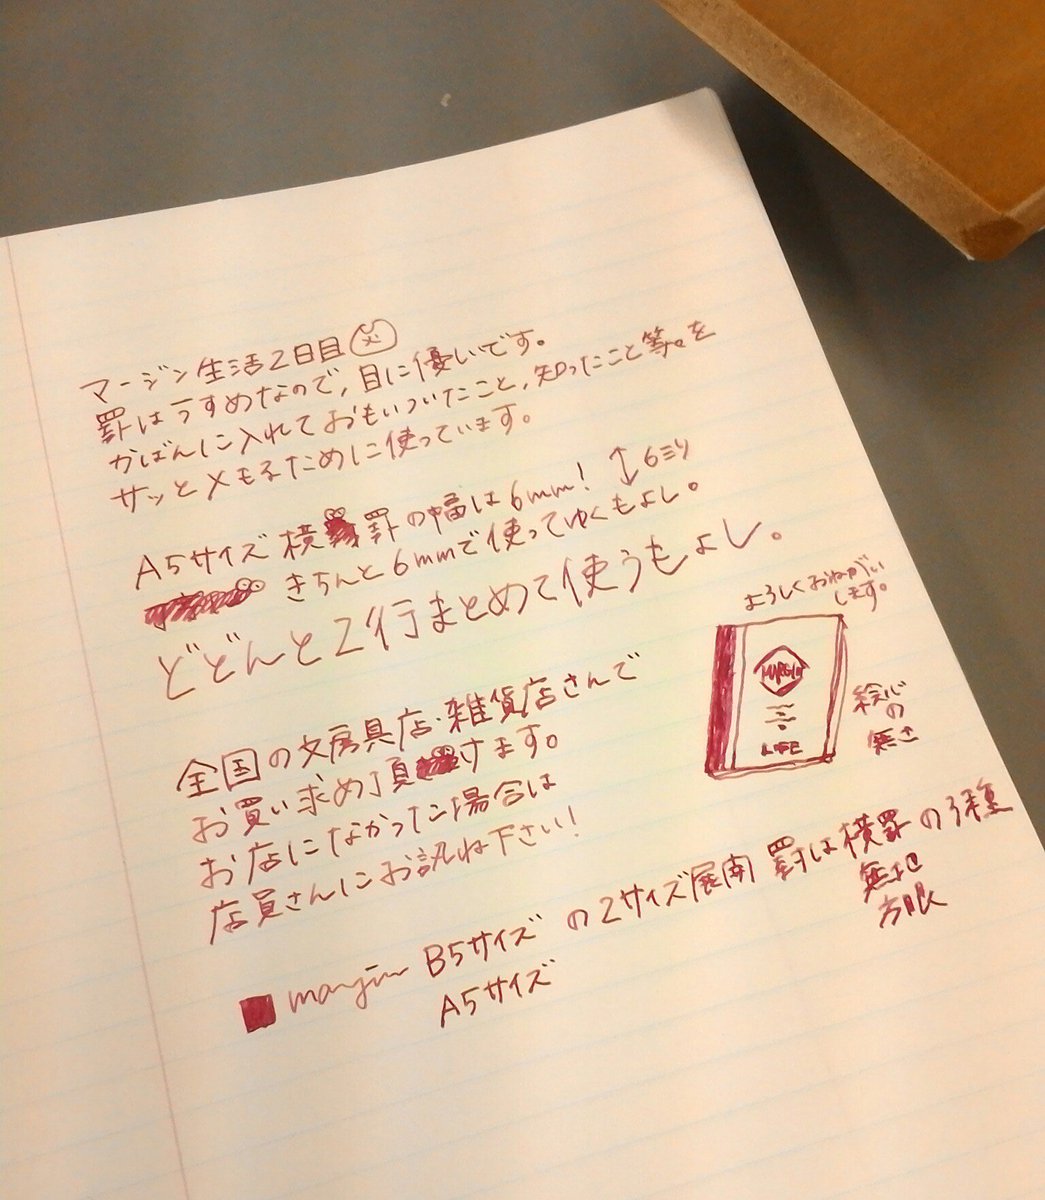 マージン生活2日目
罫はうすめなので、目に優いです。
かばんに入れておもいついたこと、知ったこと等。を
サッとメモるために使っています。
A5サイズ 横罫の幅は6mm! ↕6ミリ
きちんと6mmで使ってゆくもよし。
どどんと2行まとめて使うもよし。
よろしくおねがい
します。
MARGIN
LIFE
絵心
の
無さ
全国の文房具店・雑貨店さんで
お買い求め頂けます。
お店になかった場合は
店員さんにお訊ね下さい!
■ margin B5サイズ の2サイズ展開 罫は横罫の3種
A5サイズ
無地
方眼